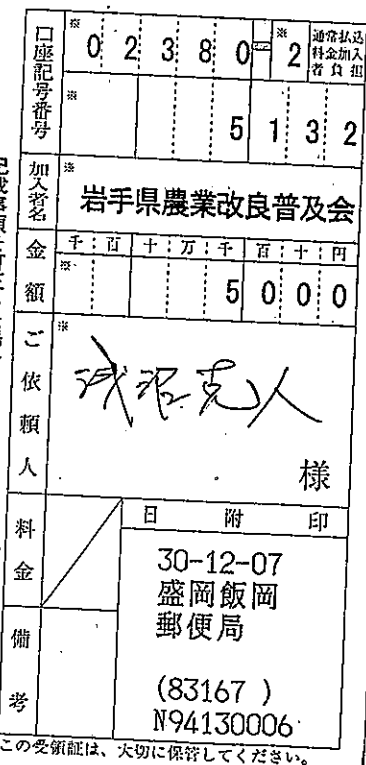 口座記号番号
※ 0 2 3 8 0 - ※ 2
通常払込料金加入者負担
※ 5 1 3 2
加入者名
※ 岩手県農業改良普及会
金額
千 百 十 万 千 百 十 円
※ 5 0 0 0
ご依頼人
※ 浅沼克人
様
料金
日 附 印
30-12-07
盛岡飯岡
郵便局
(83167 )
N94130006
備考
この受領証は、大切に保管してください。